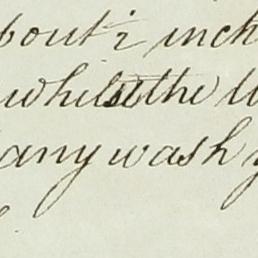 bout ½ inch
whilst the
any wash